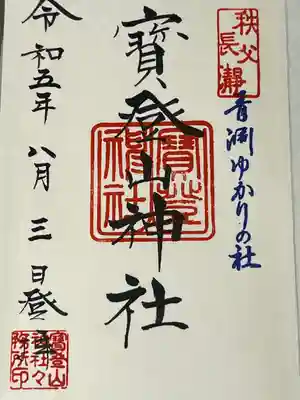 秩父
長瀞
青淵ゆかりの社
寳登山神社
寳登山神社
令和五年八月三日登拝
寳登山
神社々
務所印